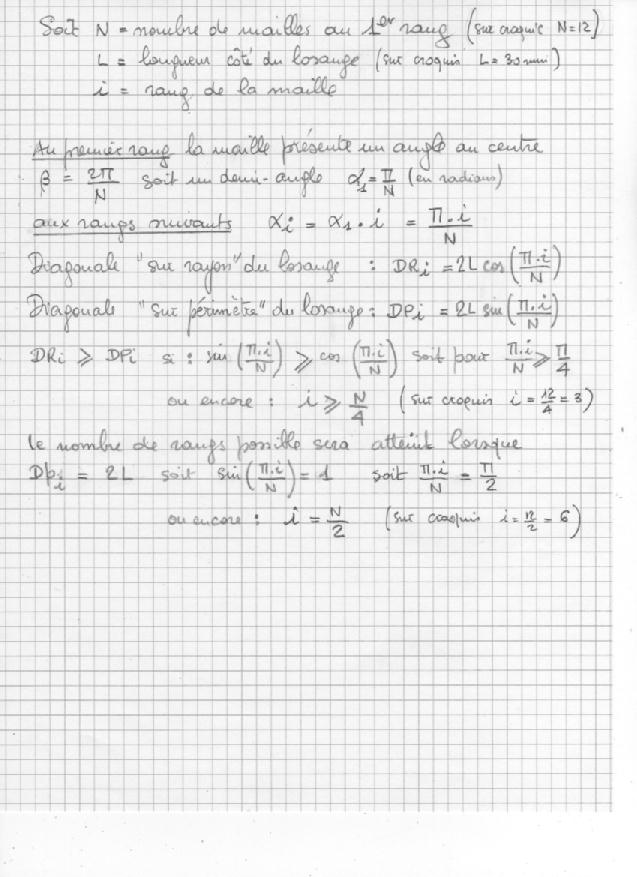 Soit N = nombre de mailles au 1er rang (sur croquis N=12)
L = longueur côté du losange (sur croquis L = 30 mm)
i = rang de la maille
Au premier rang la maille présente un angle au centre
β = 2π/N soit un demi-angle α1 = π/N (en radians)
aux rangs suivants αi = α1 · i = π·i/N
Diagonale "sur rayon" du losange : DRi = 2L cos(π·i/N)
Diagonale "sur périmètre" du losange : DPi = 2L sin(π·i/N)
DRi ⩾ DPi si : sin(π·i/N) ⩾ cos(π·i/N) soit pour π·i/N ⩾ π/4
ou encore : i ⩾ N/4 (sur croquis i = 12/4 = 3)
le nombre de rangs possible sera atteint lorsque
Dpi = 2L soit sin(π·i/N) = 1 soit π·i/N = π/2
ou encore : i = N/2 (sur croquis i = 12/2 = 6)